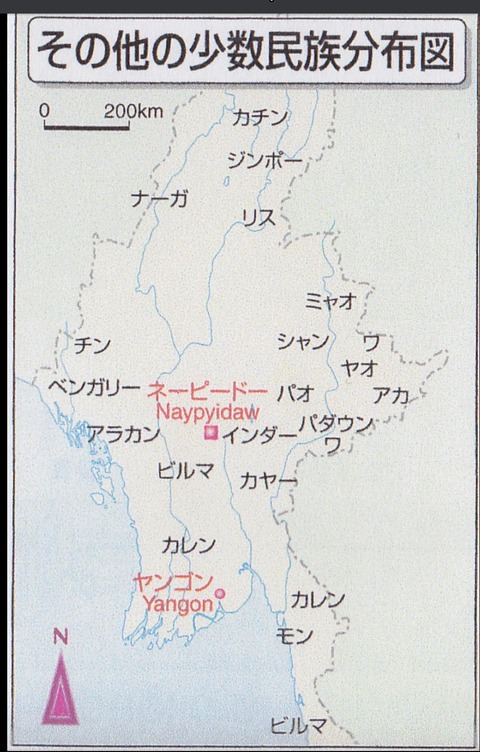 その他の少数民族分布図
0 200km
カチン
ジンポー
ナーガ
リス
ミャオ
チン
シャン
ワ
ヤオ
ベンガリー
ネーピードー
Naypyidaw
パオ
アカ
アラカン
インダー
パダウン
ワ
ビルマ
カヤー
カレン
ヤンゴン
Yangon
カレン
N
モン
ビルマ